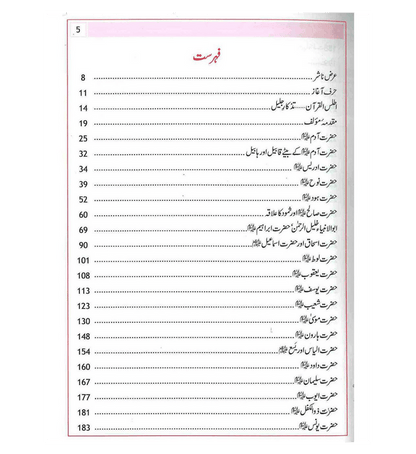 5
فہرست
عرض ناشر 8
حرف آغاز 11
اطلس القرآن — تذکار جلیل 14
مقدمۂ مؤلف 19
حضرت آدم علیہ السلام 25
حضرت آدم علیہ السلام کے بیٹے قابیل اور ہابیل 32
حضرت ادریس علیہ السلام 34
حضرت نوح علیہ السلام 39
حضرت ہود علیہ السلام 52
حضرت صالح علیہ السلام اور ثمود کا علاقہ 60
ابوالانبیاء خلیل الرحمٰن حضرت ابراہیم علیہ السلام 69
حضرت اسحاق اور حضرت اسماعیل علیہما السلام 90
حضرت لوط علیہ السلام 101
حضرت یعقوب علیہ السلام 108
حضرت یوسف علیہ السلام 113
حضرت شعیب علیہ السلام 123
حضرت موسیٰ علیہ السلام 130
حضرت ہارون علیہ السلام 148
حضرت الیاس اور یسع علیہما السلام 154
حضرت داود علیہ السلام 160
حضرت سلیمان علیہ السلام 167
حضرت ایوب علیہ السلام 177
حضرت ذوالکفل علیہ السلام 181
حضرت یونس علیہ السلام 183